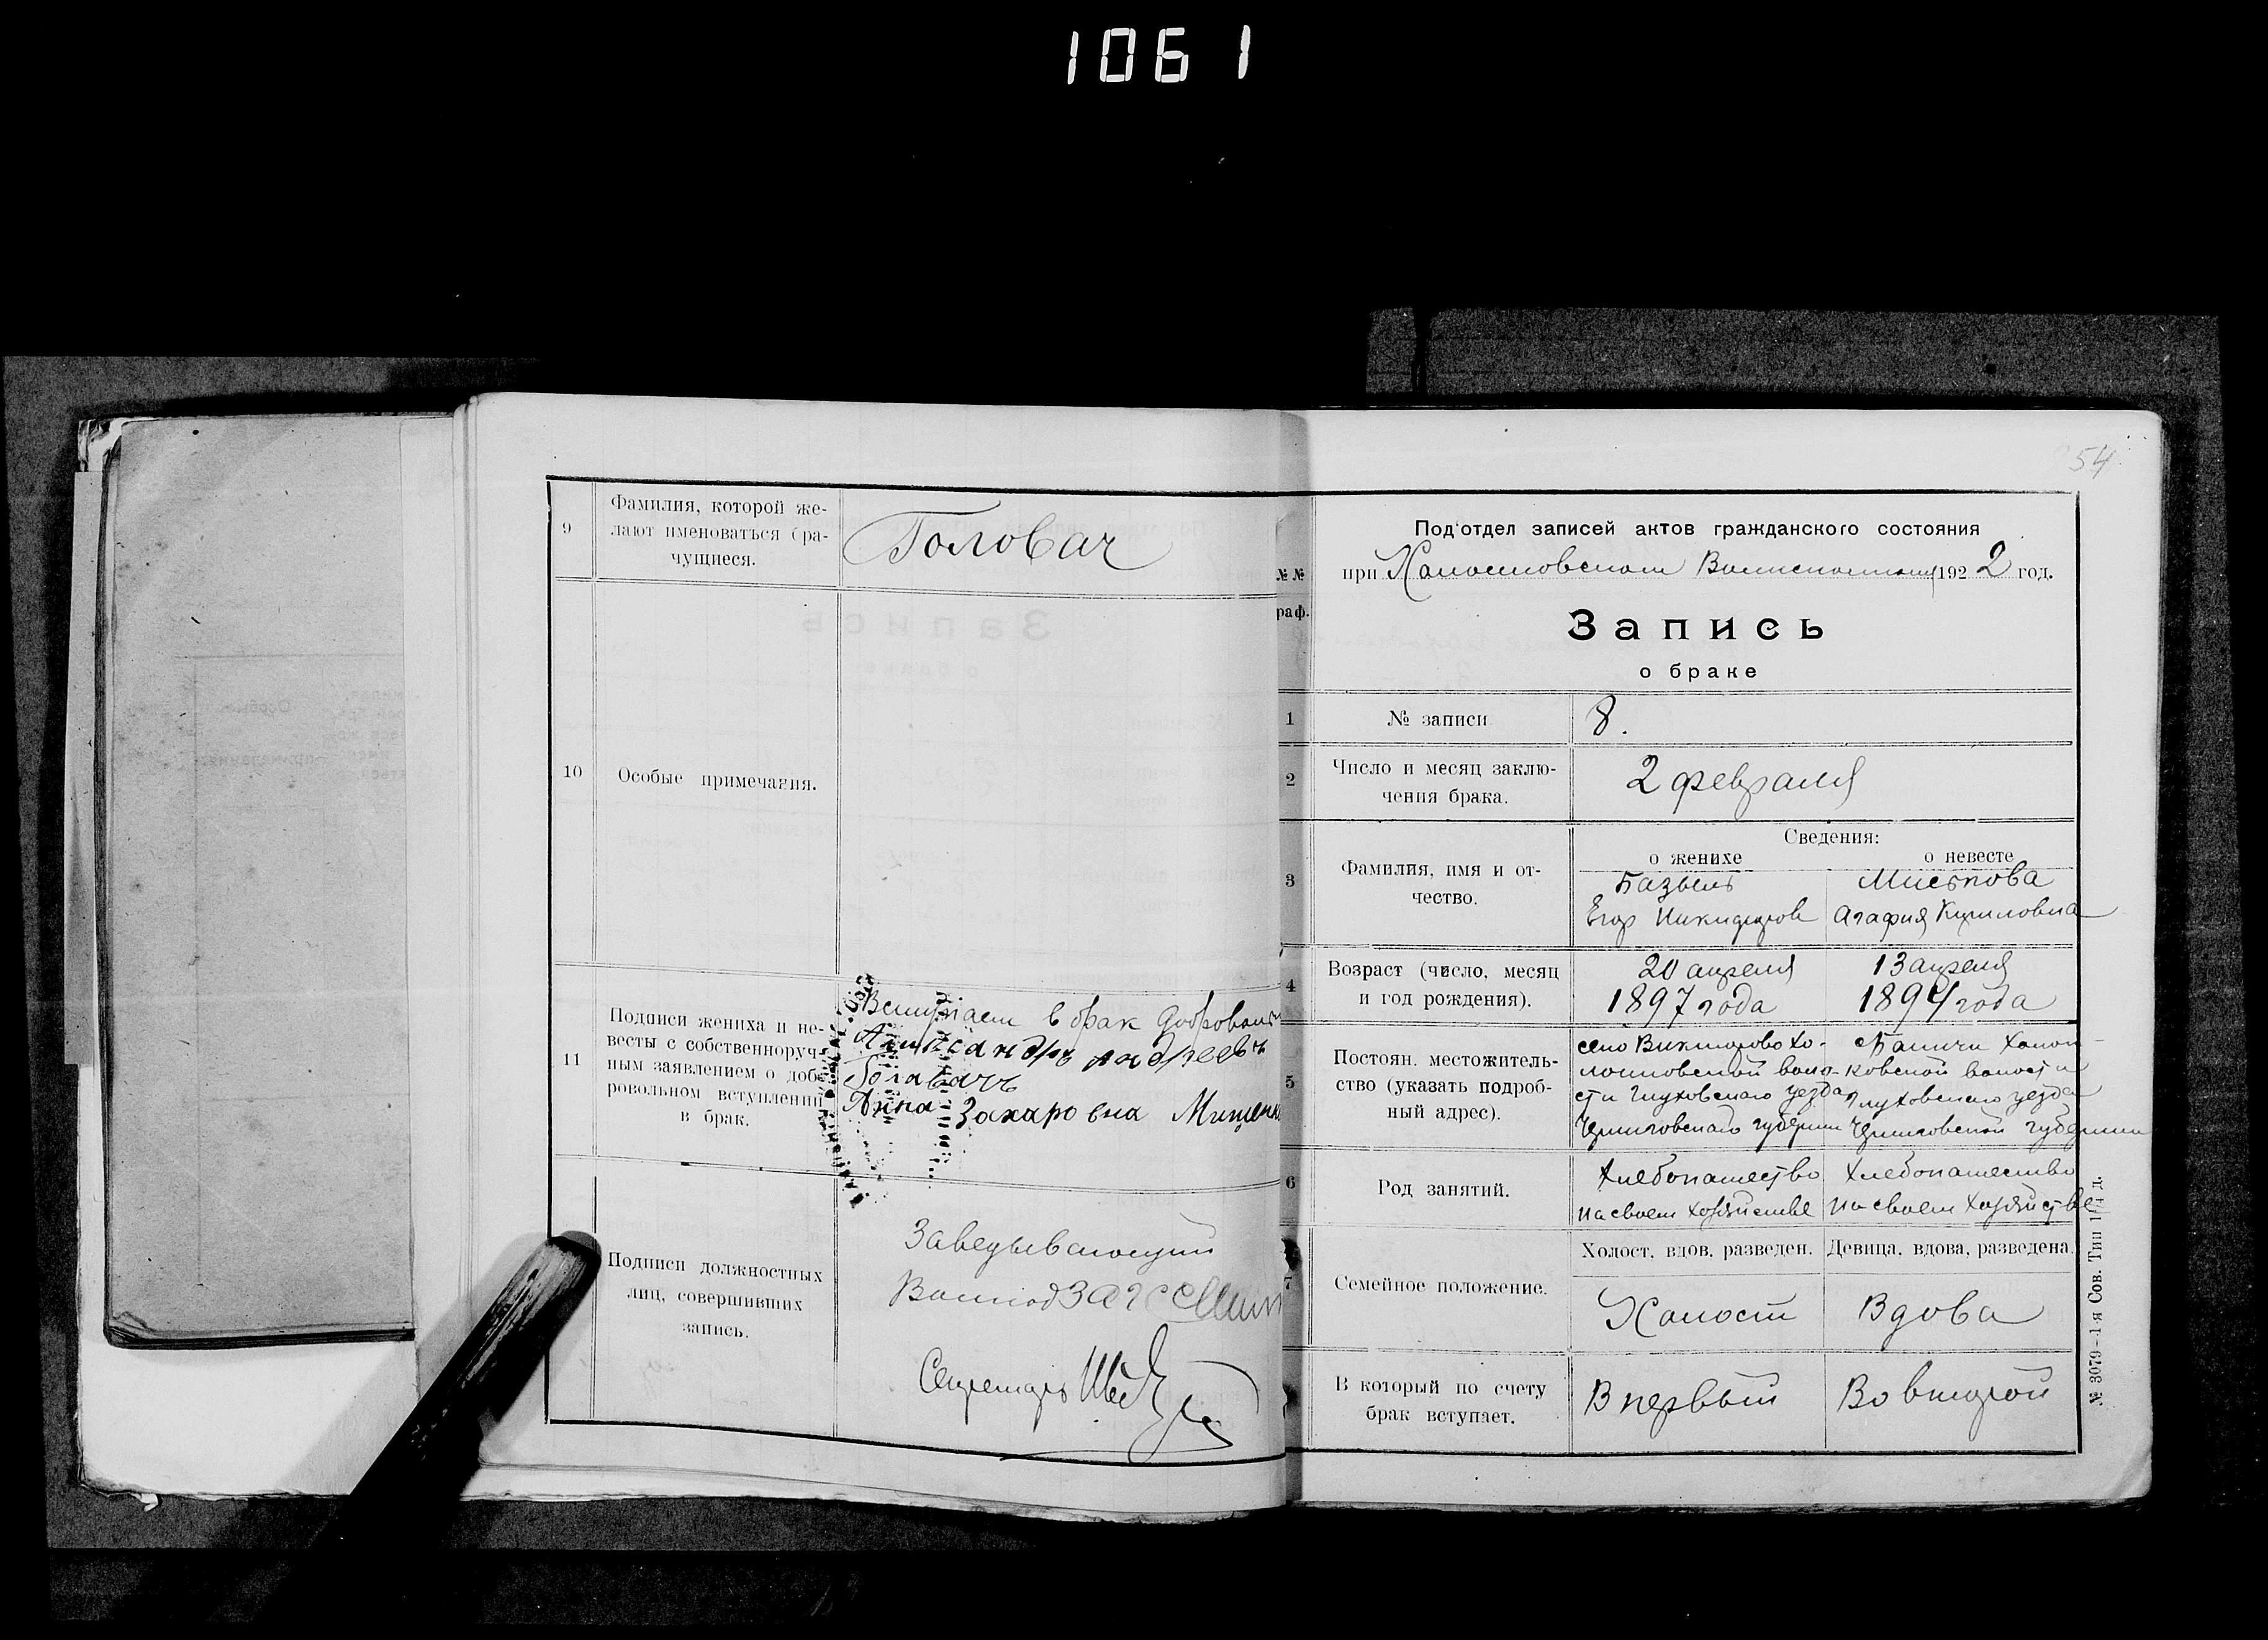 1061
54
9
Фамилия, которой же-
лают именоваться бра-
чущиеся.
Головач
10
Особые примечания.
11
Подписи жениха и не-
весты с собственноруч-
ным заявлением о доб-
ровольном вступлении
в брак.
Вступаем в брак доброволь
Александръ Андреевъ
Головачъ
Анна Захаровна Мищенк
Подписи должностных
лиц, совершивших
запись.
Заведывающий
Волпод ЗАГС
Секретарь
№№
граф.
Под'отдел записей актов гражданского состояния
при 1922 год.
Запись
о браке
1
№ записи
8.
2
Число и месяц заклю-
чения брака.
2 февраля
Сведения:
о женихе
о невесте
3
Фамилия, имя и от-
чество.
Базыль
Егор Никифоров
Миськова
Агафия
4
Возраст (число, месяц
и год рождения).
20 апреля
1897 года
13 апреля
1894 года
5
Постоян. местожитель-
ство (указать подроб-
ный адрес).
село Викторово Хо-
волос-
сти Глуховского уезда
Черниговской губернии
с Баничи
ковской волости
Глуховского уезда
Черниговской губернии
6
Род занятий.
Хлебопашество
на своем хозяйстве
Хлебопашество
На своем хозяйстве
7
Семейное положение.
Холост, вдов, разведен.
Девица, вдова, разведена.
Холост
Вдова
В который по счету
брак вступает.
В первый
Во второй
№ 3079—1-я Сов. Тип 1/4 д.